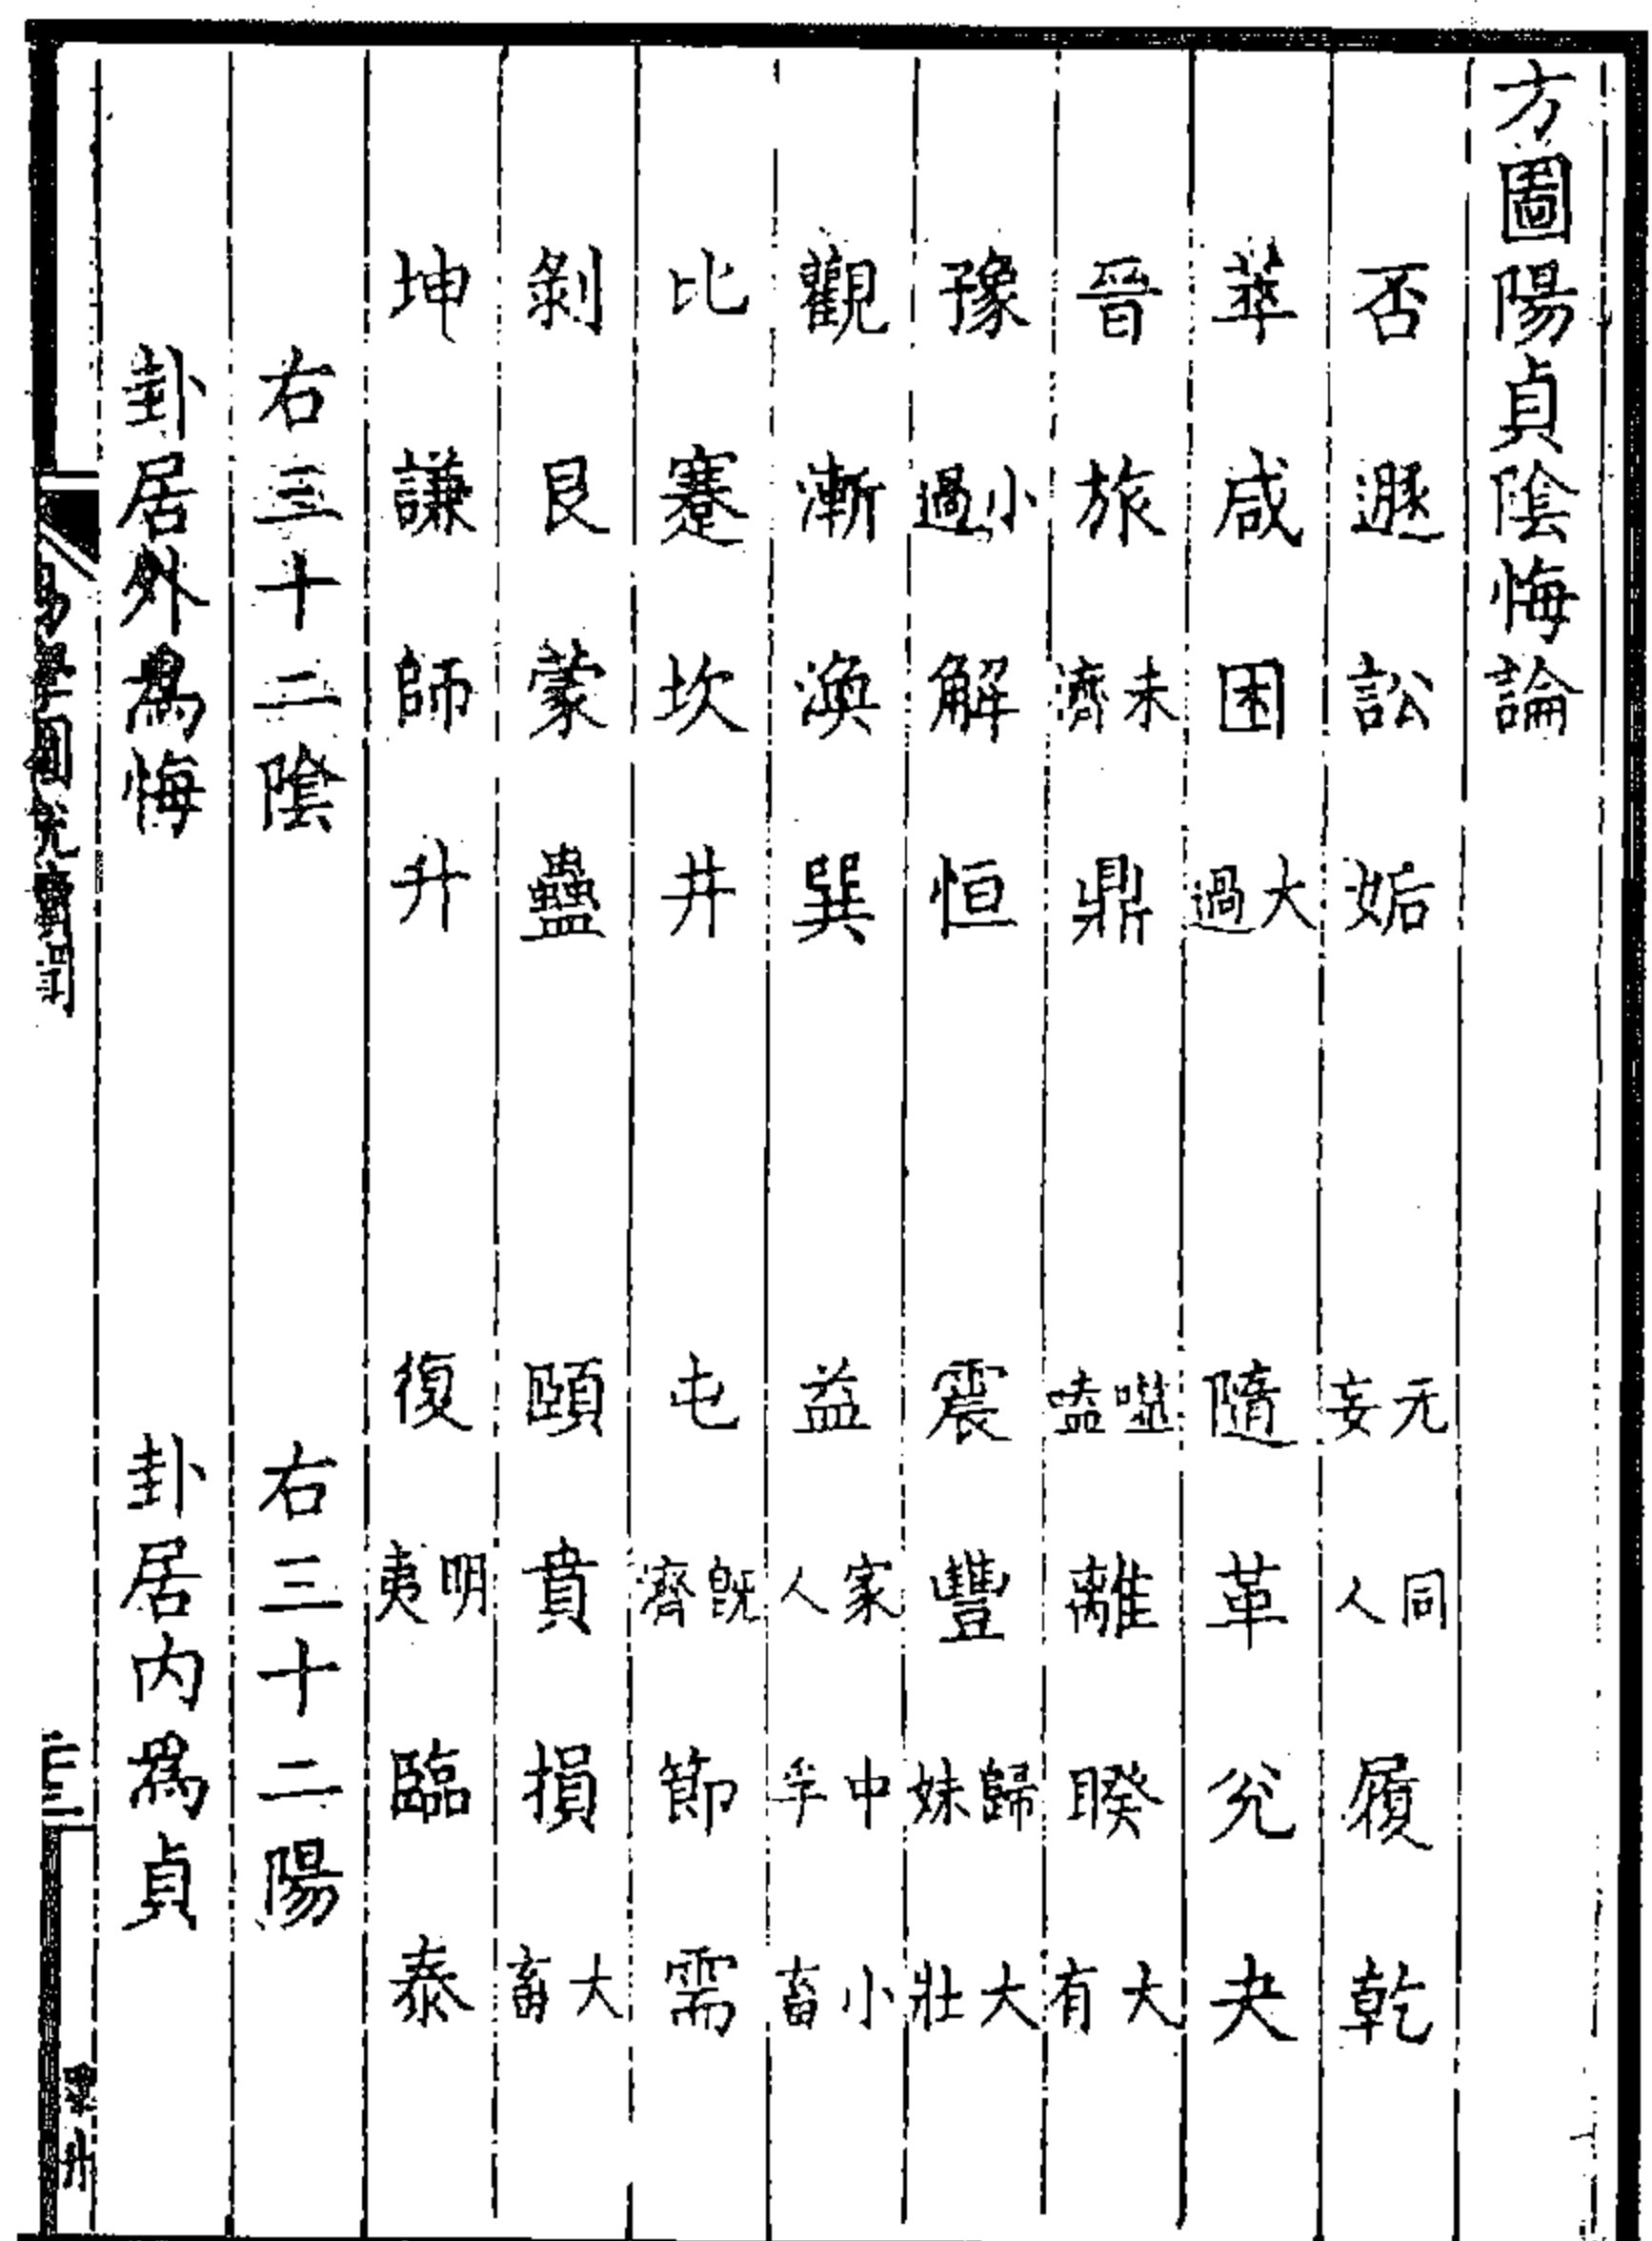 方圖陽貞陰悔論
否 遯 訟 姤 无妄 同人 履 乾
萃 咸 困 大過 隨 革 兊 夬
晉 旅 未濟 鼎 噬嗑 離 睽 大有
豫 小過 解 恒 震 豐 歸妹 大壯
觀 漸 渙 巽 益 家人 中孚 小畜
比 蹇 坎 井 屯 既濟 節 需
剝 艮 蒙 蠱 頤 賁 損 大畜
坤 謙 師 升 復 明夷 臨 泰
右三十二陰 右三十二陽
卦居外為悔 卦居內為貞